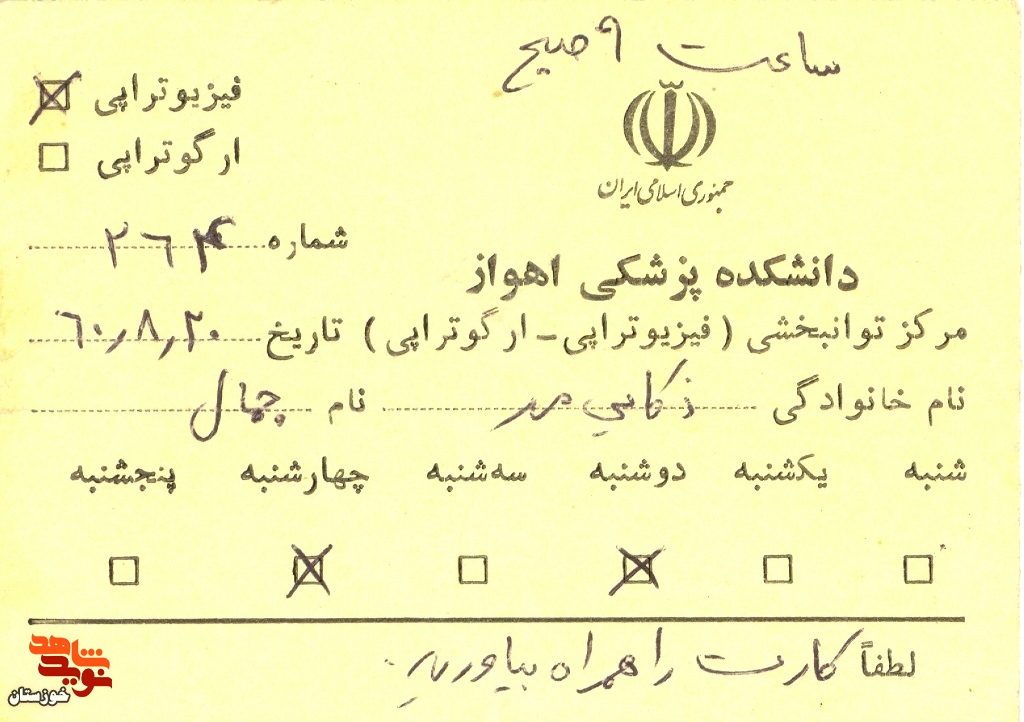 ساعت ۹ صبح
جمهوری اسلامی ایران
فیزیوتراپی
ارگوتراپی
شماره ۲۶۴
دانشکده پزشکی اهواز
مرکز توانبخشی (فیزیوتراپی - ارگوتراپی) تاریخ ۶۰،۸،۲۰
نام خانوادگی ذکایی نام جمال
شنبه یکشنبه دوشنبه سه‌شنبه چهارشنبه پنجشنبه
لطفاً کارت را همراه بیاورید.
نوید شاهد
خوزستان